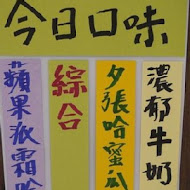 今日口味
濃郁牛奶
夕張哈蜜瓜
綜合
蘋果派霜哈